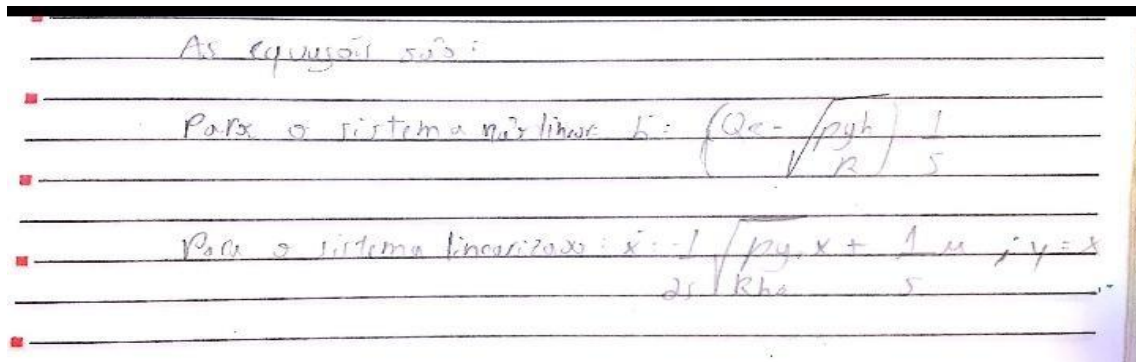 As equações são:
Para o sistema não linear ḣ = (Qe - √(ρgh/R)) 1/S
Para o sistema linearizado: ẋ = -1/2S √(ρg/Rho) x + 1/S u ; y = x